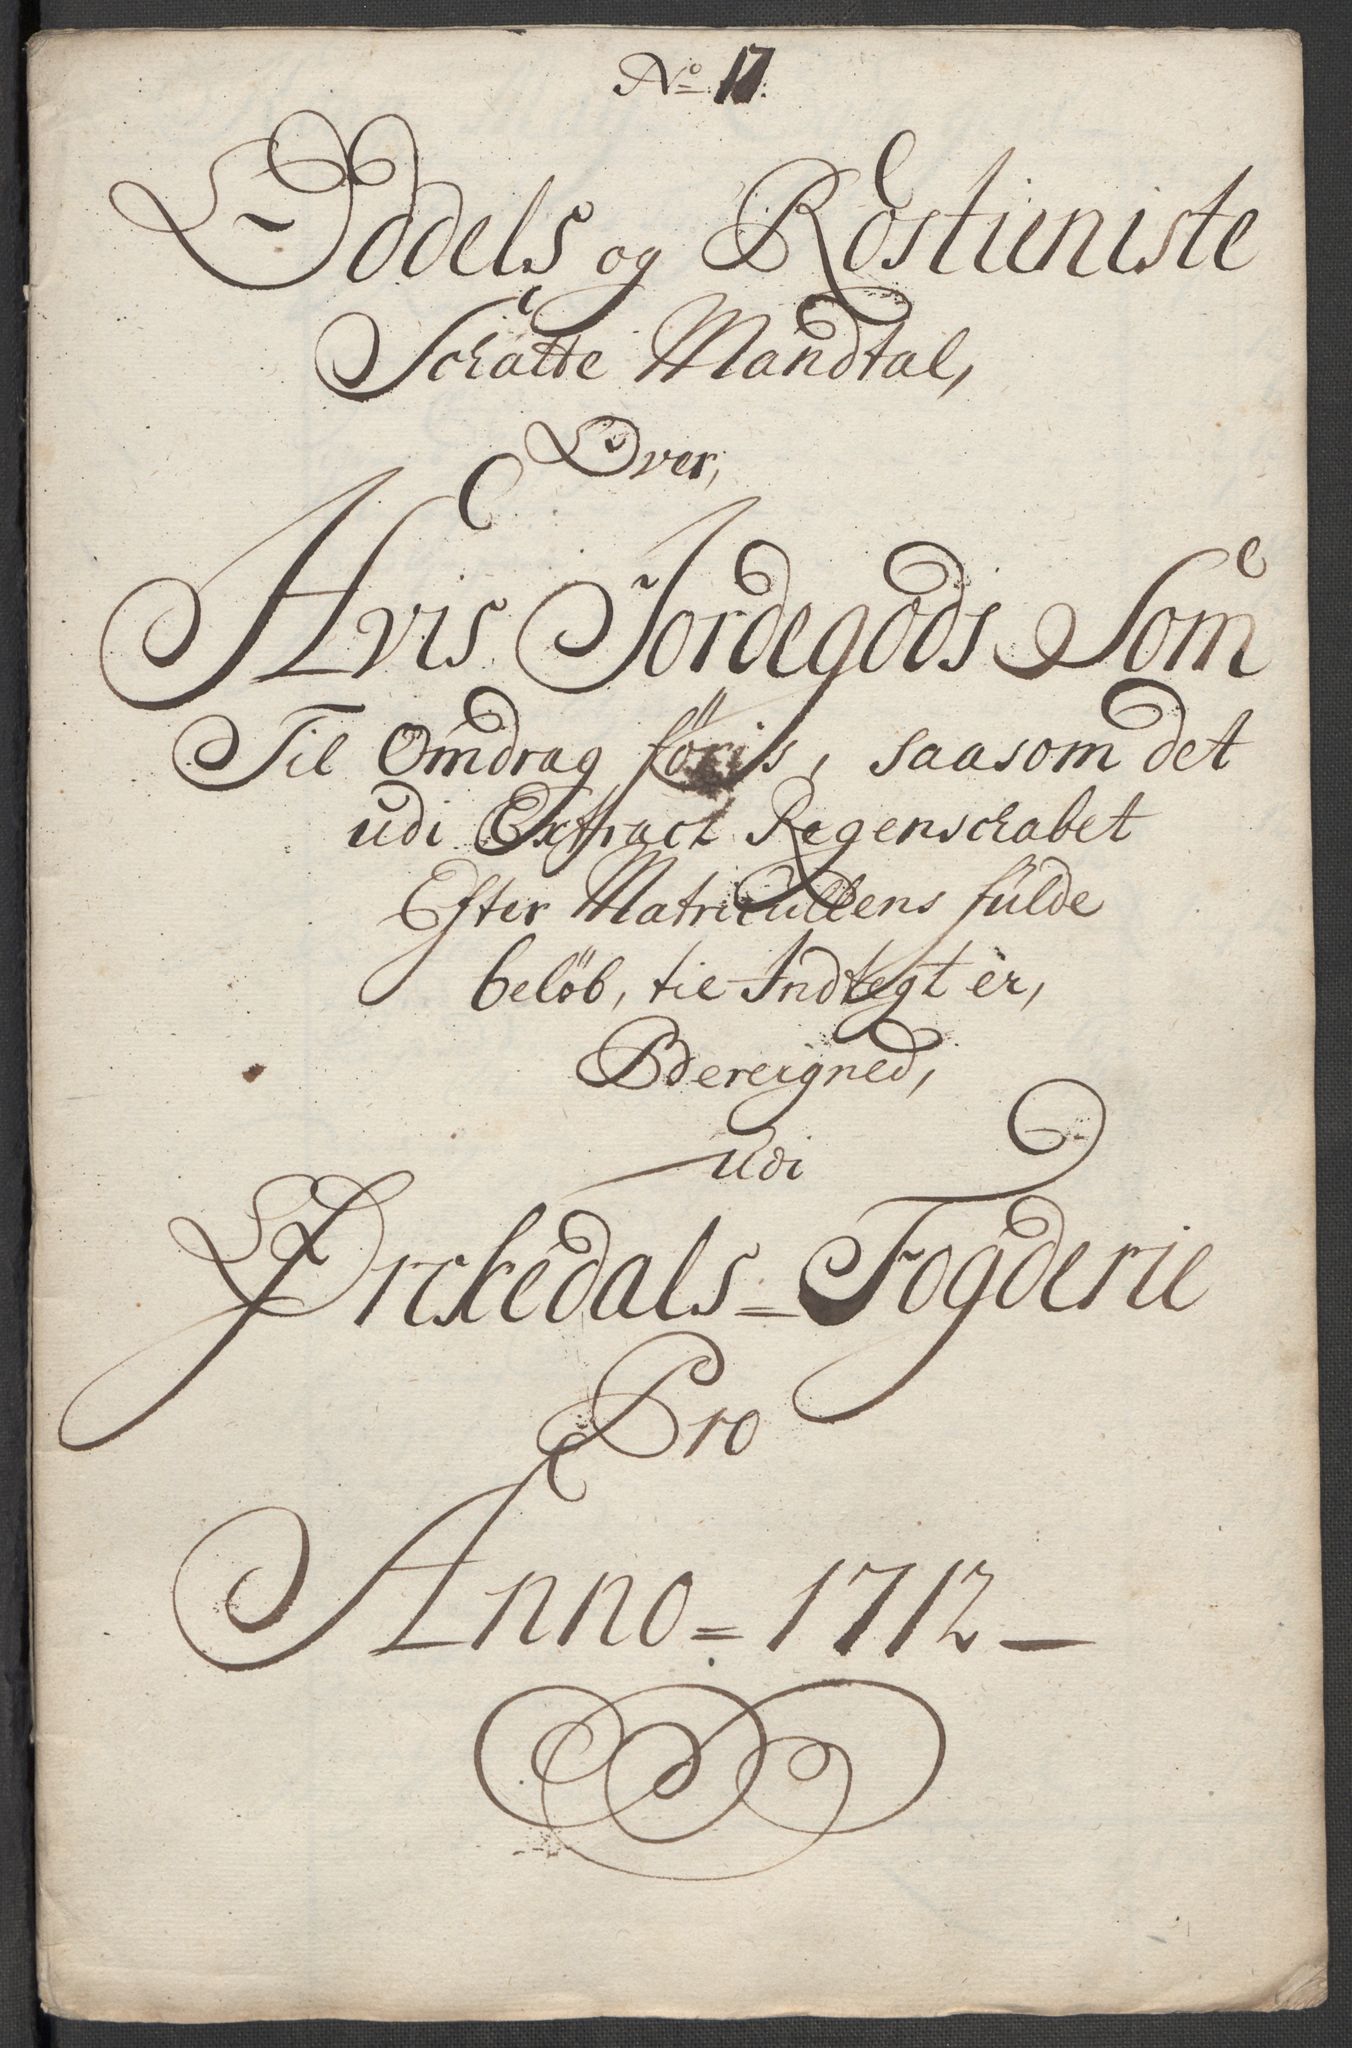 No 17.
Oddels og Rostieniste
Schatte Mandtal,
Over,
Hvis Jordegods Som
Til Omdrag föris, saasom det
udi Extract Regenschabet
Efter Matricullens fulde
belöb, til Indtegt er,
Bdereigned,
udi
Örckedals = Fogderie
Pro
Anno = 1712 —